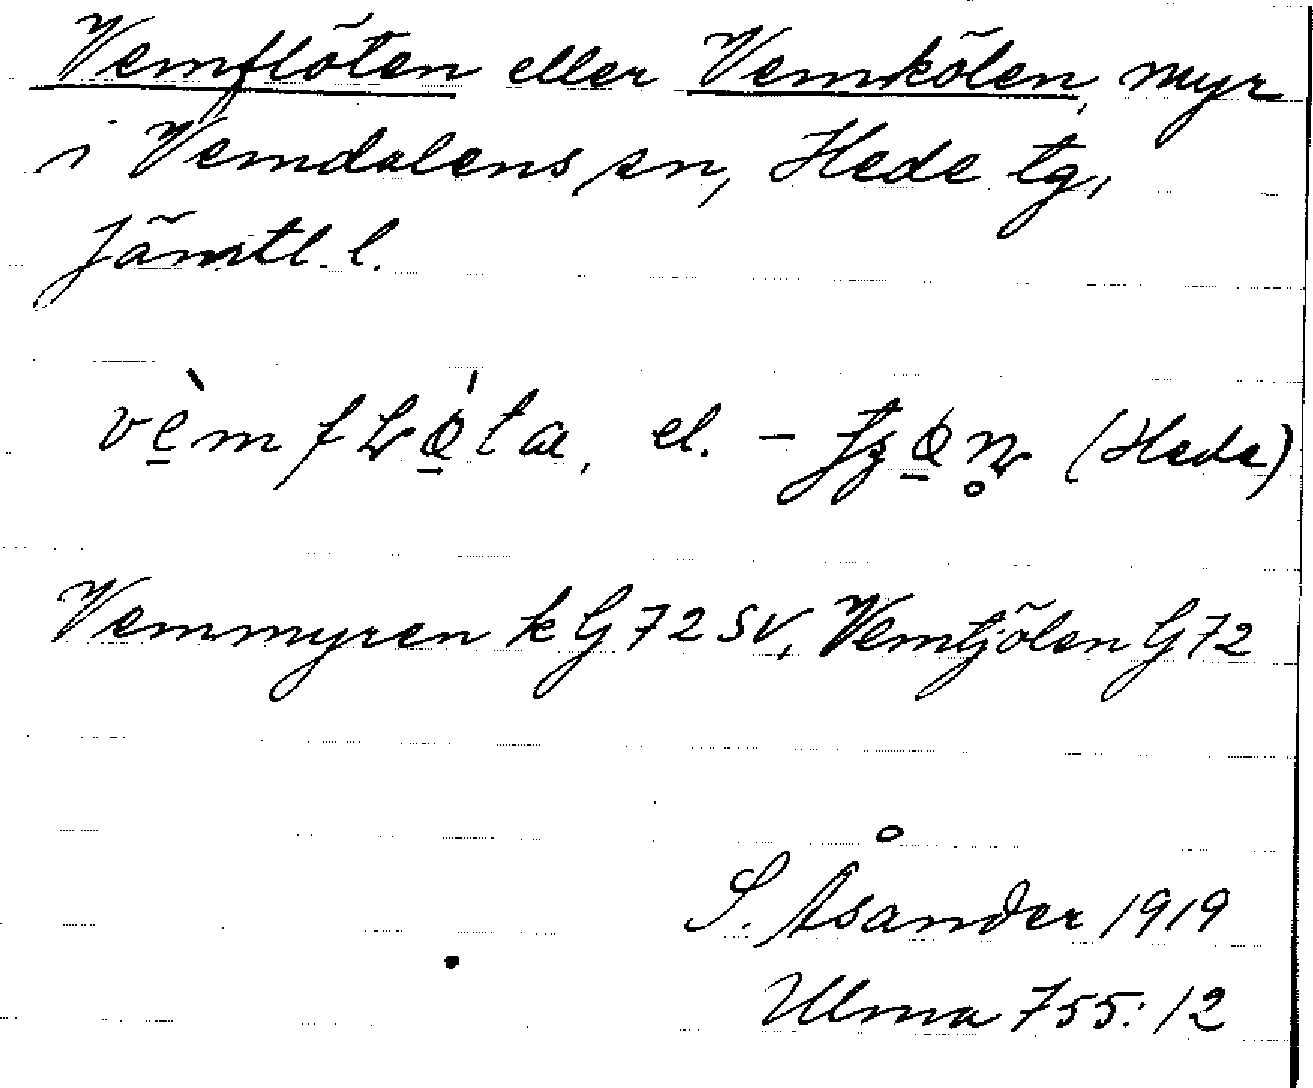 Vemflöten eller Vemkölen, myr
i Vemdalens sn, Hede tg,
Jämtl. l.
vè̠mfʟǿ̠ta, el. - (Hede)
Vemmyren k G72SV, Vemtjölen G72
S. Åsander 1919
Ulma 755:12